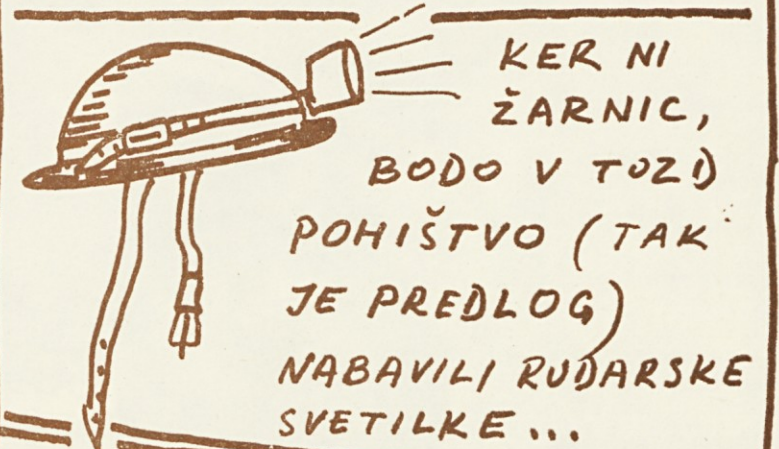 KER NI
ŽARNIC,
BODO V TOZD
POHIŠTVO (TAK
JE PREDLOG)
NABAVILI RUDARSKE
SVETILKE...